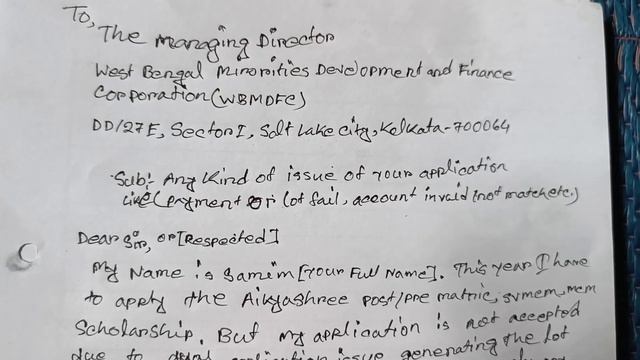 To,
The Managing Director
West Bengal Minorities Development and Finance
Corporation (WBMDFC)
DD/27E, Sector I, Salt Lake city, Kolkata-700064
Sub: Any Kind of issue of your application
Like (payment or lot fail, account invalid (not match etc.)
Dear Sir, or [Respected]
My Name is Samim [Your Full Name]. This year I have
to apply the Aikyashree post/pre matric, svmcm, mcm
Scholarship. But my application is not accepted
due to application issue generating the lot